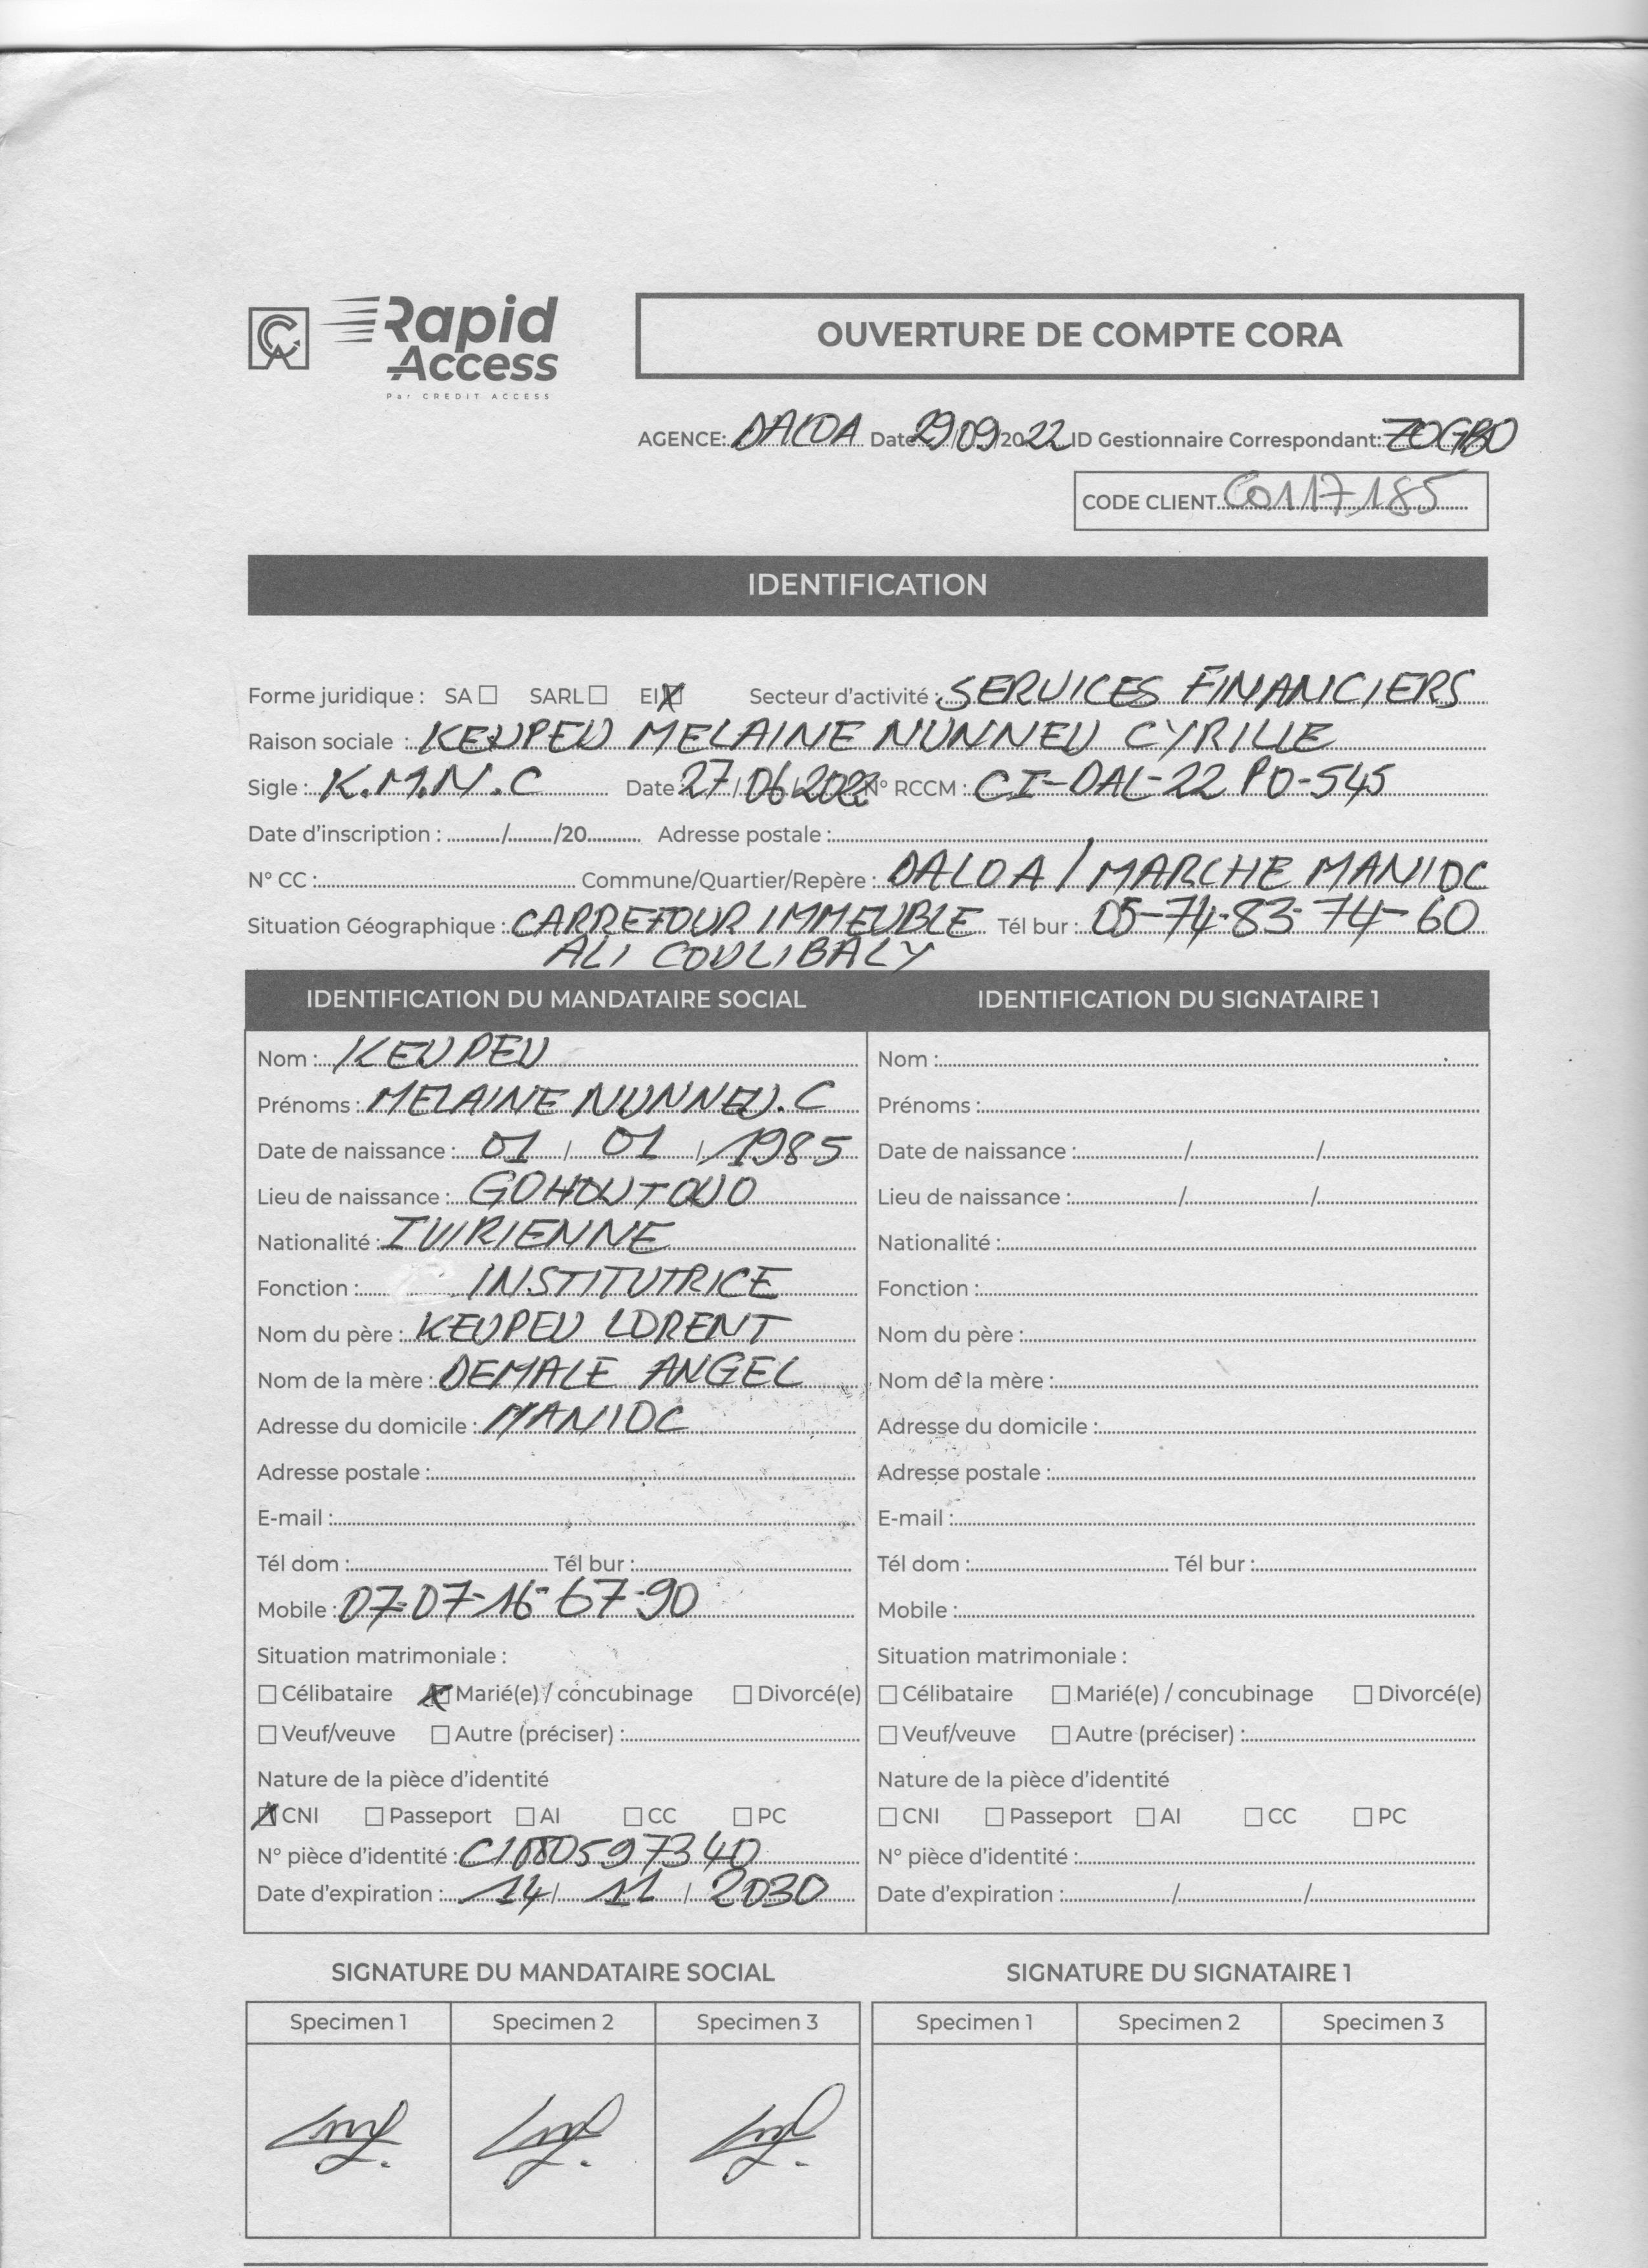 CA Rapid
Access
Par CREDIT ACCESS
OUVERTURE DE COMPTE CORA
AGENCE: DALOA Date 29/09/2022 ID Gestionnaire Correspondant: ZOGBO
CODE CLIENT C0117185
IDENTIFICATION
Forme juridique : SA ☐ SARL ☐ EI ☒ Secteur d'activité : SERVICES FINANCIERS
Raison sociale : KEUPEU MELAINE NUNNEU CYRILLE
Sigle : K.M.N.C Date 27/06/2022 N° RCCM : CI-DAL-22 PO-545
Date d'inscription : ........../........./20.......... Adresse postale :
N° CC : Commune/Quartier/Repère : DALOA / MARCHE MANIOC
Situation Géographique : CARREFOUR IMMEUBLE Tél bur : 05-74-83-74-60
ALI COULIBALY
IDENTIFICATION DU MANDATAIRE SOCIAL
Nom : KEUPEU
Prénoms : MELAINE NUNNEU.C
Date de naissance : 01 / 01 / 1985
Lieu de naissance : GOHOUTOUO
Nationalité : IVIRIENNE
Fonction : INSTITUTRICE
Nom du père : KEUPEU LORENT
Nom de la mère : DEMALE ANGEL
Adresse du domicile : MANIOC
Adresse postale :
E-mail :
Tél dom : Tél bur :
Mobile : 07-07-16-67-90
Situation matrimoniale :
☐ Célibataire ☒ Marié(e) / concubinage ☐ Divorcé(e)
☐ Veuf/veuve ☐ Autre (préciser) :
Nature de la pièce d'identité
☒ CNI ☐ Passeport ☐ AI ☐ CC ☐ PC
N° pièce d'identité :
Date d'expiration : 14 / 11 / 2030
IDENTIFICATION DU SIGNATAIRE 1
Nom :
Prénoms :
Date de naissance : / /
Lieu de naissance : / /
Nationalité :
Fonction :
Nom du père :
Nom de la mère :
Adresse du domicile :
Adresse postale :
E-mail :
Tél dom : Tél bur :
Mobile :
Situation matrimoniale :
☐ Célibataire ☐ Marié(e) / concubinage ☐ Divorcé(e)
☐ Veuf/veuve ☐ Autre (préciser) :
Nature de la pièce d'identité
☐ CNI ☐ Passeport ☐ AI ☐ CC ☐ PC
N° pièce d'identité :
Date d'expiration : / /
SIGNATURE DU MANDATAIRE SOCIAL
Specimen 1 Specimen 2 Specimen 3
SIGNATURE DU SIGNATAIRE 1
Specimen 1 Specimen 2 Specimen 3